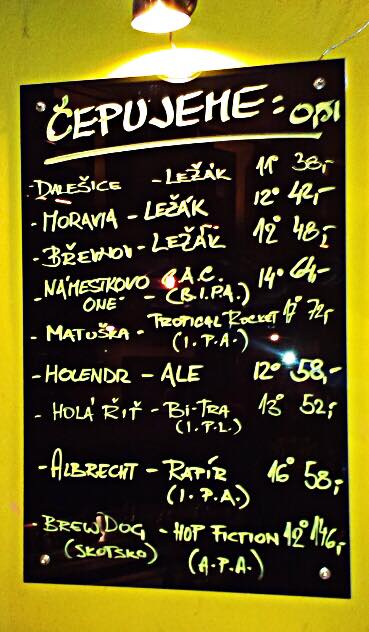 ČEPUJEME: 0,5l
- DALEŠICE - LEŽÁK 11° 38,-
- MORAVIA - LEŽÁK 12° 42,-
- BŘEVNOV - LEŽÁK 12° 48,-
- NÁMESTKOVO - C.A.C. 14° 64,-
ONE (B.I.P.A.)
- MATUŠKA - TROPICAL ROCKET 17° 72,-
(I.P.A.)
- HOLENDR - ALE 12° 58,-
- HOLÁ ŘIŤ - BI-TRA 13° 52,-
(I.P.L.)
- ALBRECHT - RAPÍR 16° 58,-
(I.P.A.)
- BREWDOG - HOP FICTION 12° 146,-
(SKOTSKO) (A.P.A.)